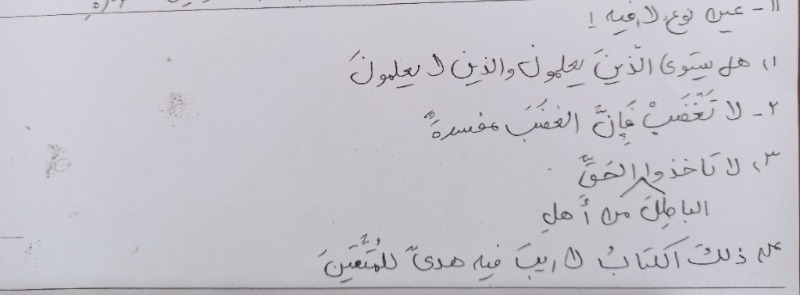 ١١- عین نوع «لا» فیه !
١) هل یستوی الّذینَ یعلمونَ والذین لا یعلمونَ
٢- لا تَغْضَبْ فَإِنَّ الغضَبَ مفسدةٌ
٣) لا تاخذوا الحَقَّ
الباطِلَ من أَهلِ
٤) ذلكَ الکتابُ لا ریبَ فیه هدیً للمُتَّقینَ